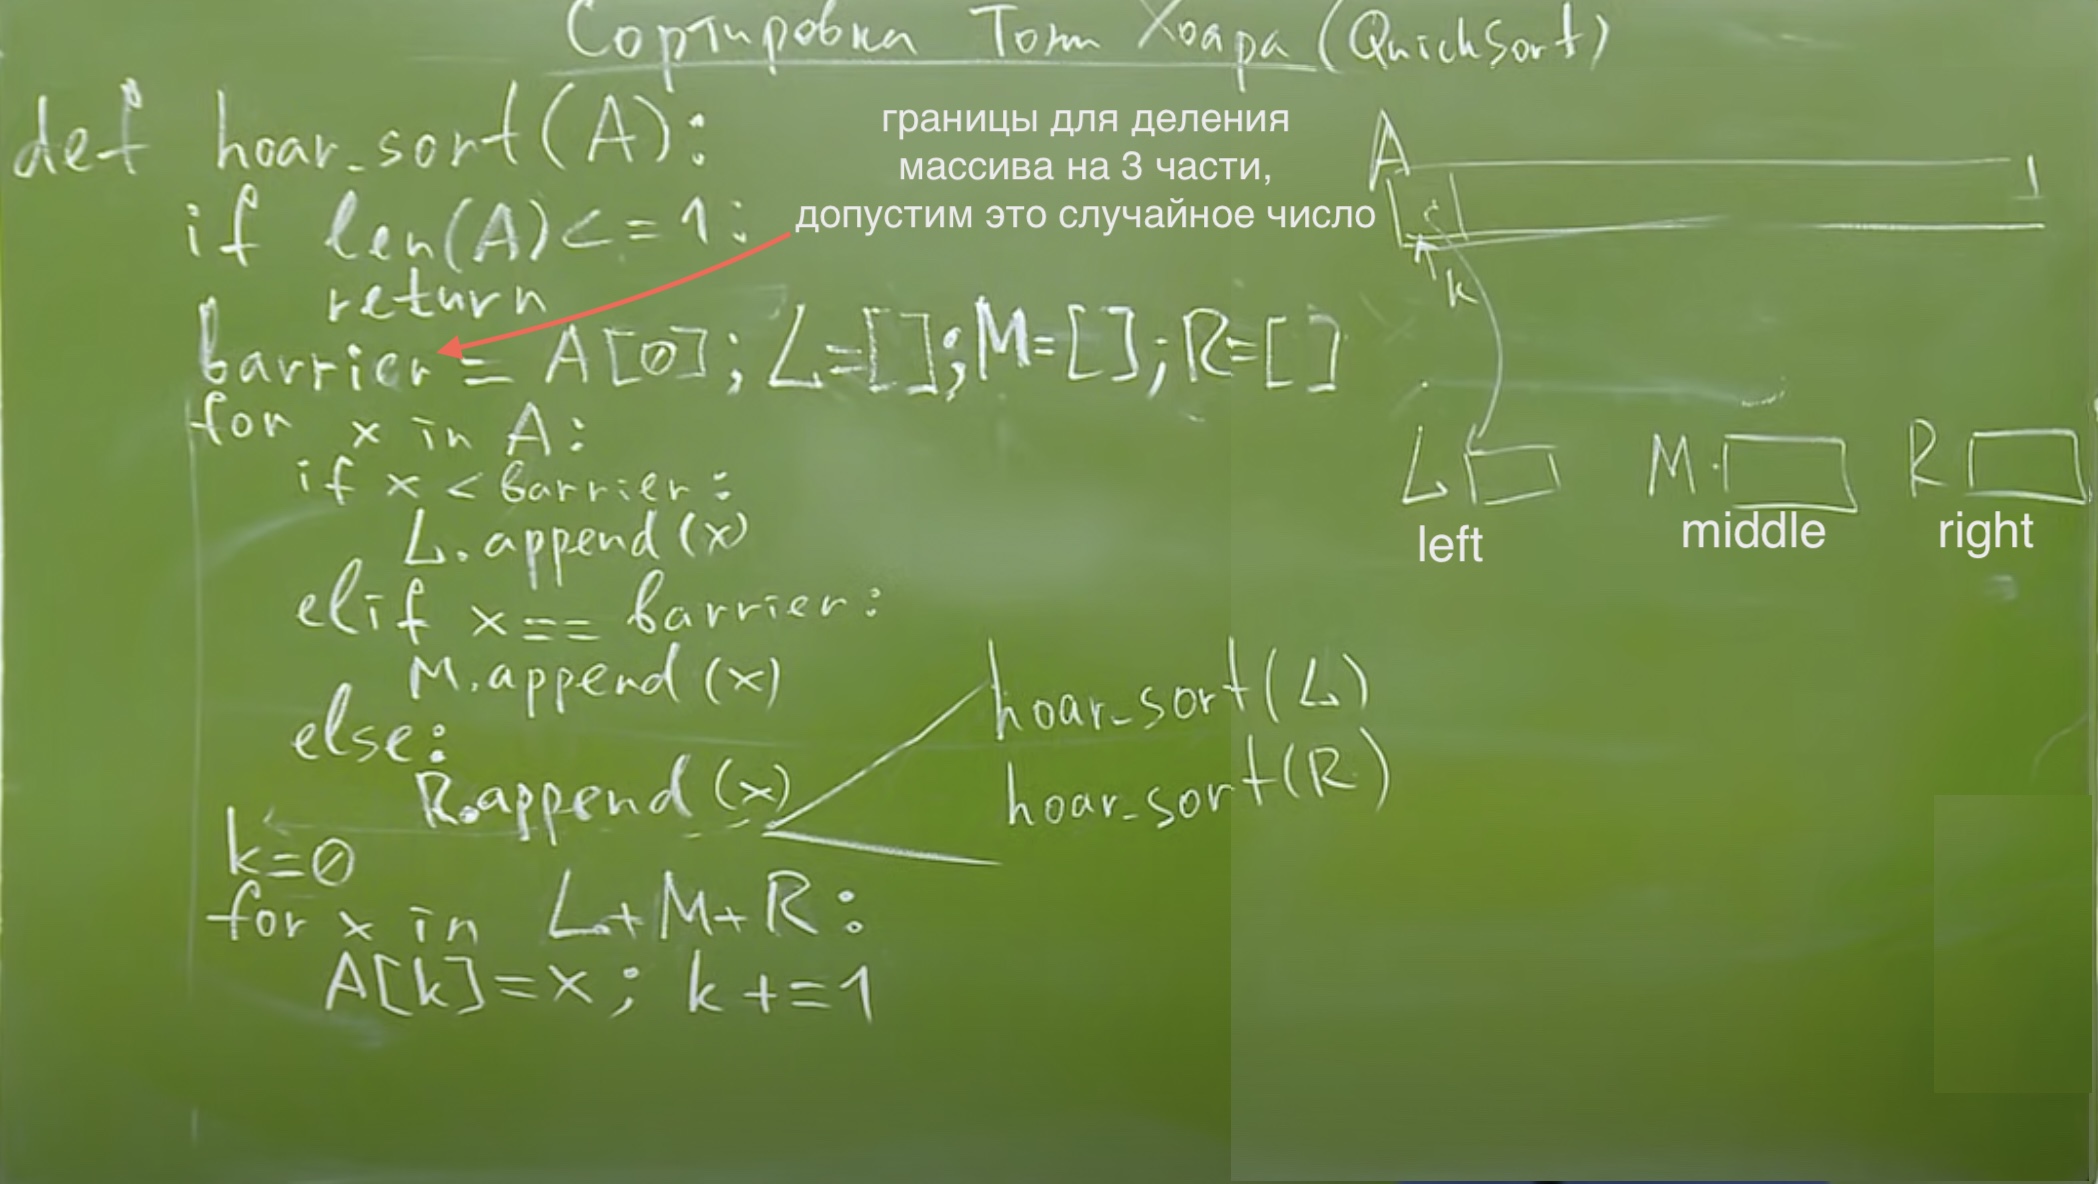 Сортировка Тони Хоара (QuickSort)
def hoar_sort(A):
if len(A)<=1:
return
barrier = A[0]; L=[]; M=[]; R=[]
for x in A:
if x < barrier:
L.append(x)
elif x == barrier:
M.append(x)
else:
R.append(x)
hoar_sort(L)
hoar_sort(R)
k=0
for x in L+M+R:
A[k]=x; k+=1
границы для деления
массива на 3 части,
допустим это случайное число
A
k
L M R
left middle right